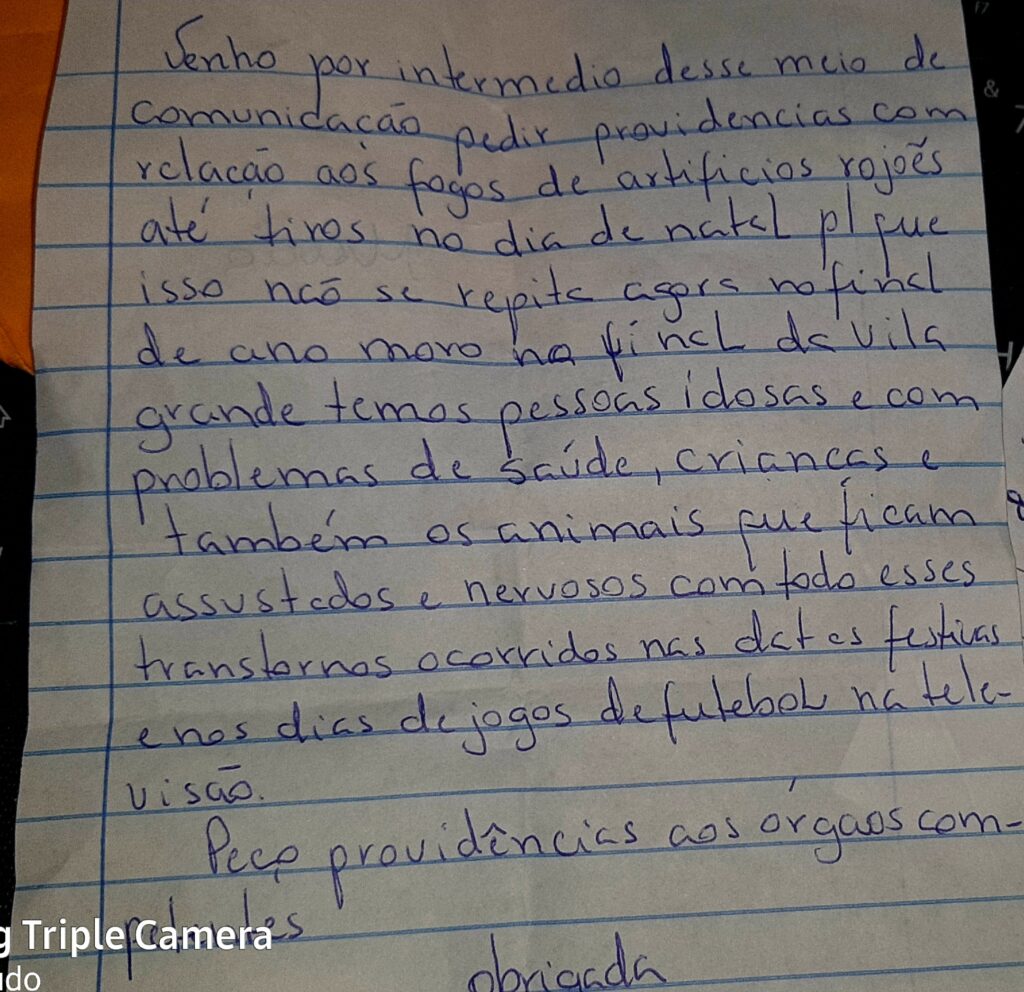 Venho por intermedio desse meio de
comunidação pedir providencias com
relação aos fogos de artificios rojões
até tiros no dia de natal p/ que
isso não se repita agora no final
de ano moro na final da Vila
grande temos pessoas idosas e com
problemas de saúde, crianças e
também os animais que ficam
assustados e nervosos com todo esses
transtornos ocorridos nas datas festivas
e nos dias de jogos de futebol na tele-
visão.
Peço providências aos órgãos com-
petentes
g Triple Camera
udo
obrigada